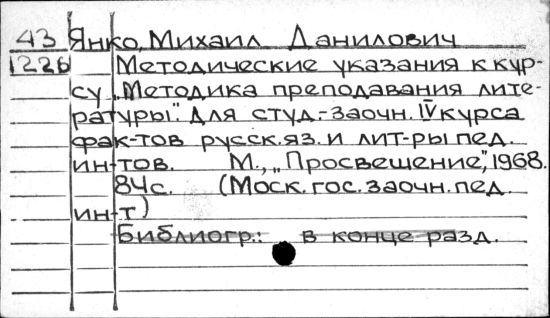 43 Янко, Михаил Данилович
1226 Методические указания к кур-
су „Методика преподавания лите-
ратуры". Для студ.-заочн. IV курса
фак-тов русск.яз. и лит-ры пед.
ин-тов. М., „Просвещение", 1968.
84с. (Моск. гос. заочн. пед.
ин-т)
Библиогр.: в конце разд.